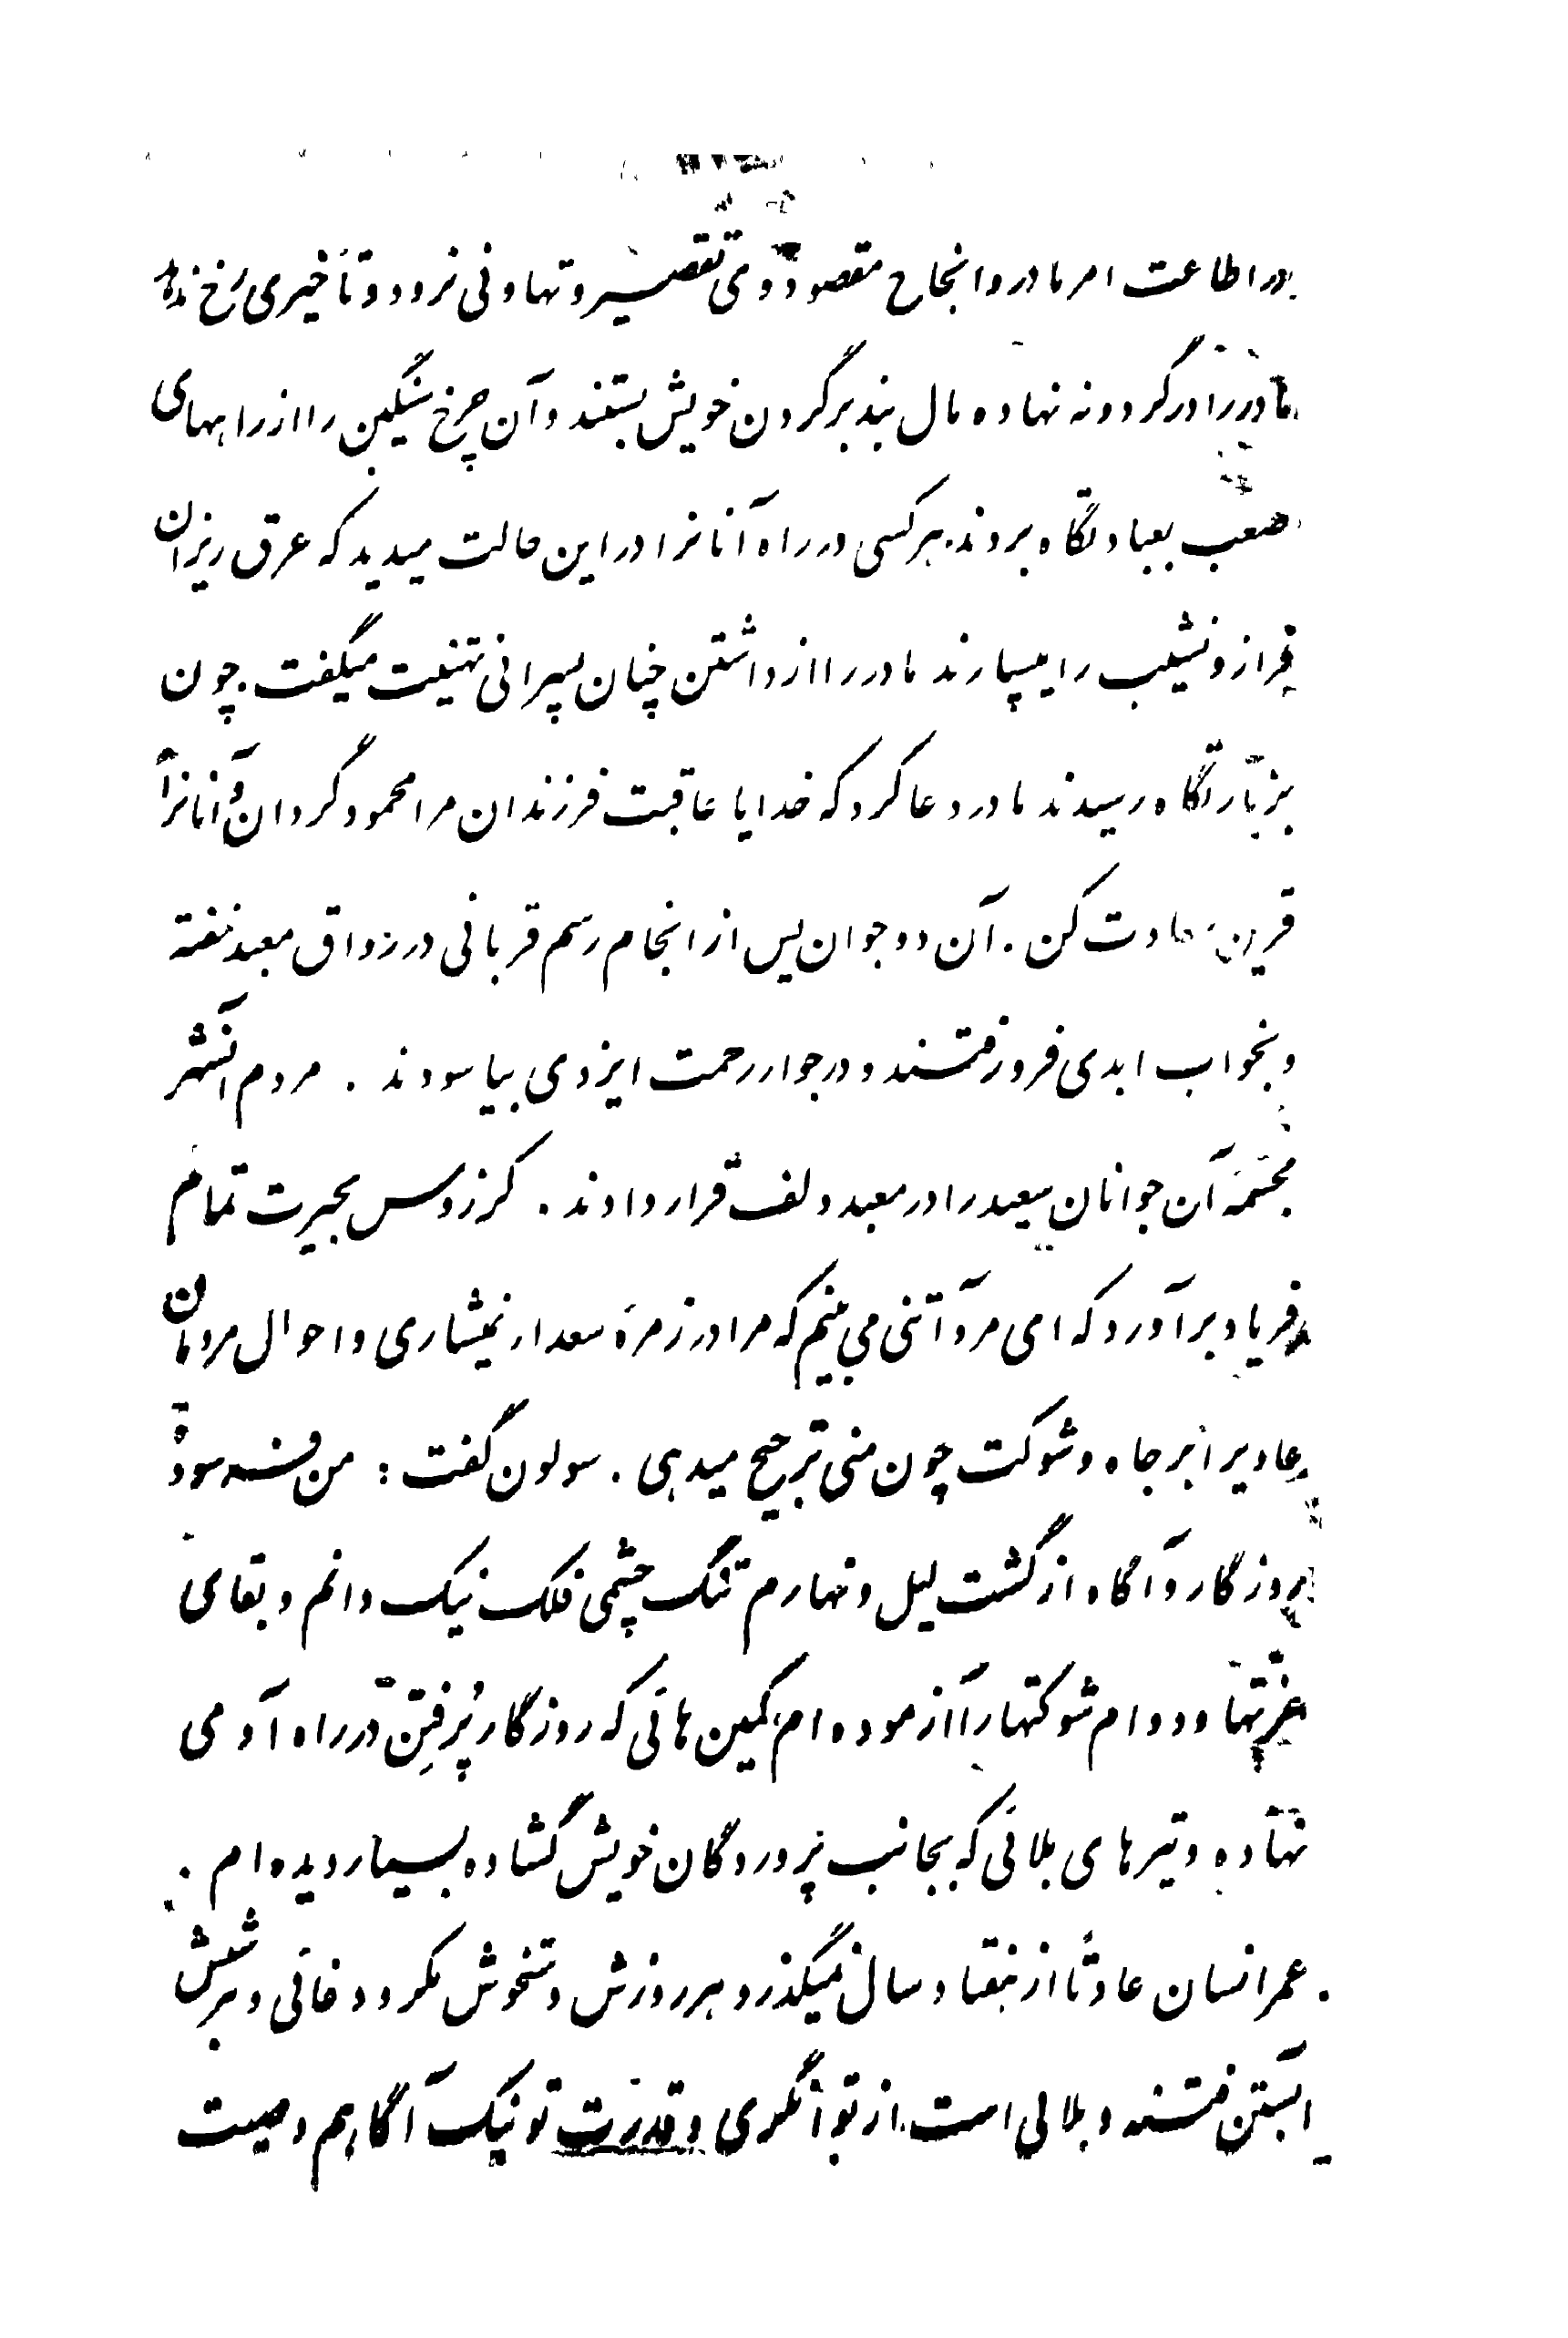 در اطاعت امر مادر و انجاح مقصود وی تقصیر و تهاونی نرود و تأخیری رخ ندهد
مادر را در گردونه نهاده مال بند بر گردن خویش بستند و آن چرخ سنگین را از راههای
صعب بعبادتگاه بردند. هر کسی در راه آنانرا در این حالت میدید که عرق ریزان
فراز و نشیب را میسپارند مادر را از داشتن چنان پسرانی تهنیت میگفت. چون
بزیارتگاه رسیدند مادر دعا کرد که خدایا عاقبت فرزندان مرا محمود گردان و آنانرا
قرین سعادت کن. آن دو جوان پس از انجام رسم قربانی در رواق معبد خفته
و بخواب ابدی فرو رفتند و در جوار رحمت ایزدی بیاسودند. مردم آنشهر
مجسّمهٔ آن جوانان سعید را در معبد دلف قرار دادند. کرزوس بحیرت تمام
فریاد برآورد که ای مرد آتنی می بینم که مرا در زمرهٔ سعدا نمیشاری و احوال مردمان
عادیرا بر جاه و شوکت چون منی ترجیح میدهی. سولون گفت: من فرسودهٔ
روزگار و آگاه از گشت لیل و نهارم تنگ چشمی فلک نیک دانم و بقای
عزتها و دوام شوکتها را آزموده ام، کمین هائی که روزگار پُر فِتن در راه آدمی
نهاده و تیرهای بلائی که بجانب پروردگان خویش گشاده بسیار دیده ام.
عمر انسان عادتاً از هفتاد سال نمیگذرد هر روزش دستخوش مکر و دغائی و هر شبش
آبستن فتنه و بلائی است. از توانگری و قدرت تو نیک آگاهم وصیت